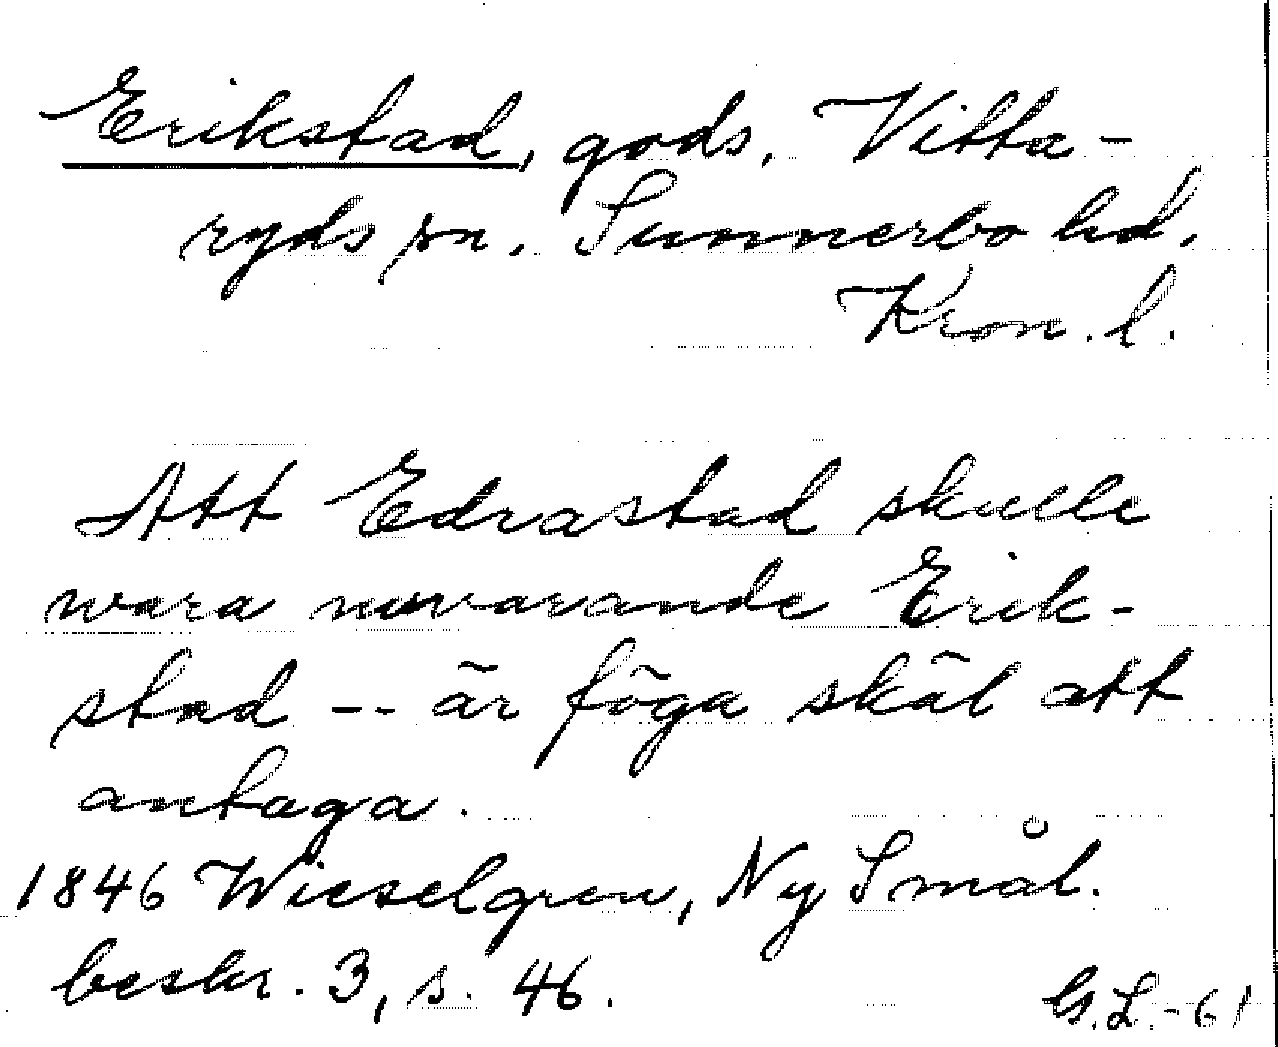 Erikstad, gods, Vitta-
ryds sn. Sunnerbo hd.
Kron. l.
Att Edrastad skulle
wara nuvarande Erik-
stad -- är föga skäl att
antaga.
1846 Wieselgren, Ny Smål.
beskr. 3, s. 46.
G. L. -61